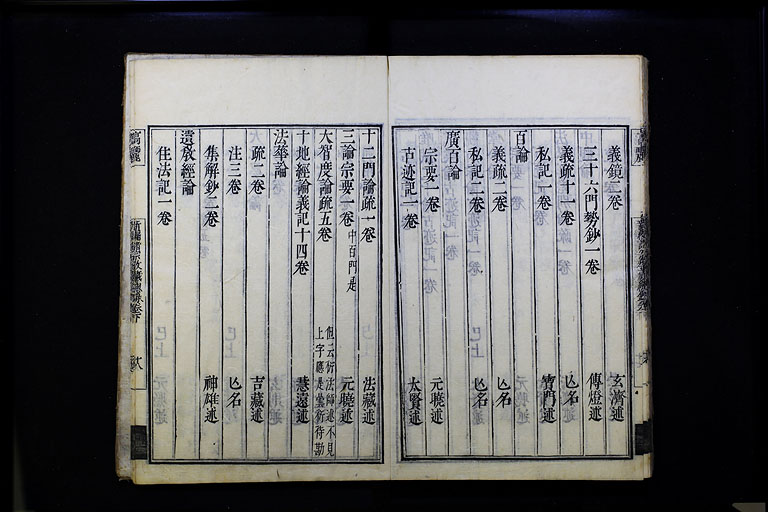 義鏡二卷 玄濟述
三十六門勢鈔一卷 傳燈述
義疏十一卷 亾名
私記一卷 實門述
百論
義疏二卷 亾名
私記二卷 亾名
廣百論
宗要一卷 元曉述
古迹記一卷 太賢述
十二門論疏一卷 法藏述
三論宗要一卷 中百門是 元曉述
大智度論疏五卷 但云衍法師述不見上字應是曇衍待勘
十地經論義記十四卷 慧遠述
法華論
疏二卷 吉藏述
注三卷 亾名
集解鈔二卷 神雄述
遺敎經論
住法記一卷